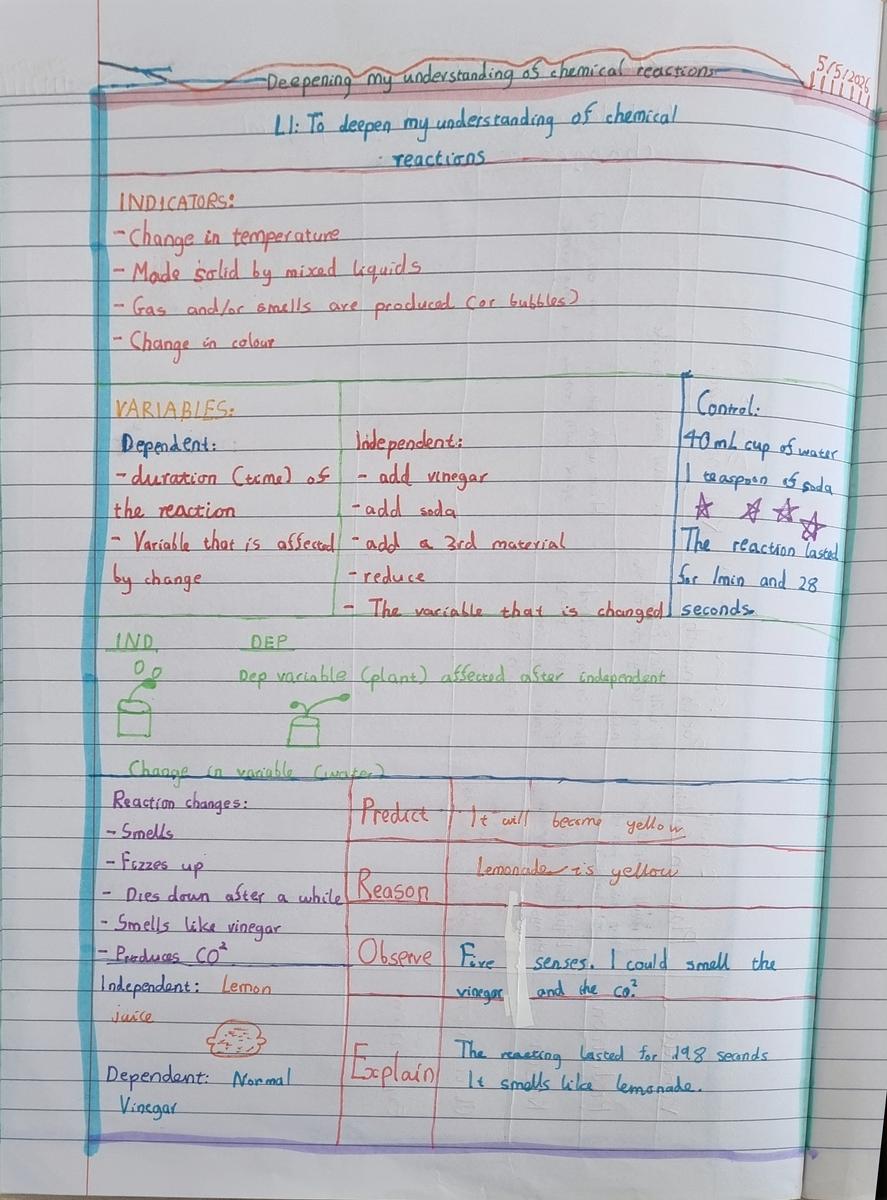 Deepening my understanding of chemical reactions
5/5/2026
LI: To deepen my understanding of chemical
reactions
INDICATORS:
- Change in temperature
- Made solid by mixed liquids
- Gas and/or smells are produced (or bubbles)
- Change in colour
VARIABLES:
Dependent:
- duration (time) of
the reaction
- Variable that is affected
by change
Independent:
- add vinegar
- add soda
- add a 3rd material
- reduce
- The variable that is changed
Control:
40mL cup of water
1 teaspoon of soda
The reaction lasted
for 1min and 28
seconds.
IND
DEP
Dep variable (plant) affected after independent
Change in variable (water)
Reaction changes:
- Smells
- Fizzes up
- Dies down after a while
- Smells like vinegar
- Produces CO²
Independent: Lemon
juice
Dependent: Normal
Vinegar
Predict
It will become yellow
Reason
Lemonade is yellow
Observe
Five senses. I could smell the
vinegar and the CO².
Explain
The reacting lasted for 198 seconds
It smells like lemonade.